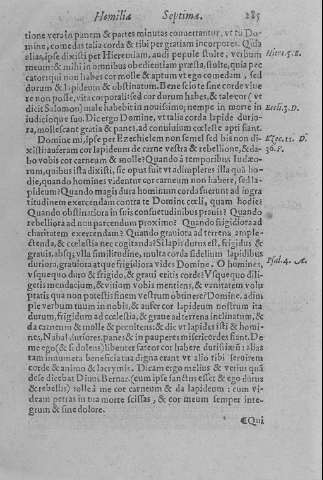 Homilia Septima. 285
tione vera in panem & partes minutas conuertantur, vt tu Do-
mine, comedas talia corda & tibi per gratiam incorpores. Quia
alias, ipse dixisti per Hieremiam, audi popule stulte, verbum Hiere.5.E.
meum: & nihi in omnibus obedientiam præsta, stulte, quia pec
catori qui non habes cor molle & aptum vt ego comedam, sed
durum & lapideum & obstinatum. Bene scio te sine corde viue
re non posse, vita corporali: sed cor durum habes, & taleo cor (vt
dicit Salomon) male habebit in nouissimo; nempe in morte in Eccli.3.D.
iudicioque suo. Dic ergo Domine, vt talia corda lapide durio
ra, mollescant gratia & panes, ad conuiuium cœleste apti fiant.
Domine mi, ipse per Ezechielem non semel sed bis non di- Ezec.11. D.
xisti: auferam cor lapideum de carne vestra & rebellione, & da- 36.F.
bo vobis cor carneum & molle? Quando à temporibus Iudæo-
rum, quibus ista dixisti, sic opus fuit vt adimpleres illa quã ho-
die, quando homines videntur cor carneum non habere, sed la-
pideum? Quando magis dura hominum corda fuerunt ad ingra
titudinem exercendam contra te Domine cœli, quam hodie?
Quando obstinatiora in suis consuetudinibus prauis? Quando
rebelliora ad non parcendum proximo? Quando frigidiora ad
charitatem exercendam? Quando grauiora ad terrena ample-
ctenda, & cœlestia nec cogitanda? Si lapis durus est, frigidus &
grauis, absq; vlla similitudine, multa corda fidelium lapidibus
duriora, grauiora atque frigidiora vides Domine. O homines, Psal.4. A.
vsquequo duro & frigido, & graui eritis corde? Vsquequo dili-
gitis mendacium, & vitium vobis mentiens, & vanitatem volu
ptatis quæ non potest is finem vestrum obtinere? Domine, adim
ple verbum tuum in nobis, & aufer cor lapideum nostrum ita
durum, frigidum ad cœlestia, & graue ad terrena inclinatum, &
da carneum & molle & pœnitens: & dic vt lapides isti & homi-
nes, Nabal duriores, panes & in pauperes misericordes fiant. De
me ego (& si dolens) libenter fateor cor habere durissimũ: alias
tam innumera beneficia tua digna erant vt alio tibi seruirem
corde & animo & lacrymis. Dicam ergo melius & verius quã
de se dicebat Diuus Bernar. (cum ipse sanctus esset & ego durus
& rebellis) tolle à me cor carneum & da lapideum: cum vi-
deam petras in tua morte scissas, & cor meum semper inte-
grum & sine dolore.
¶Qui